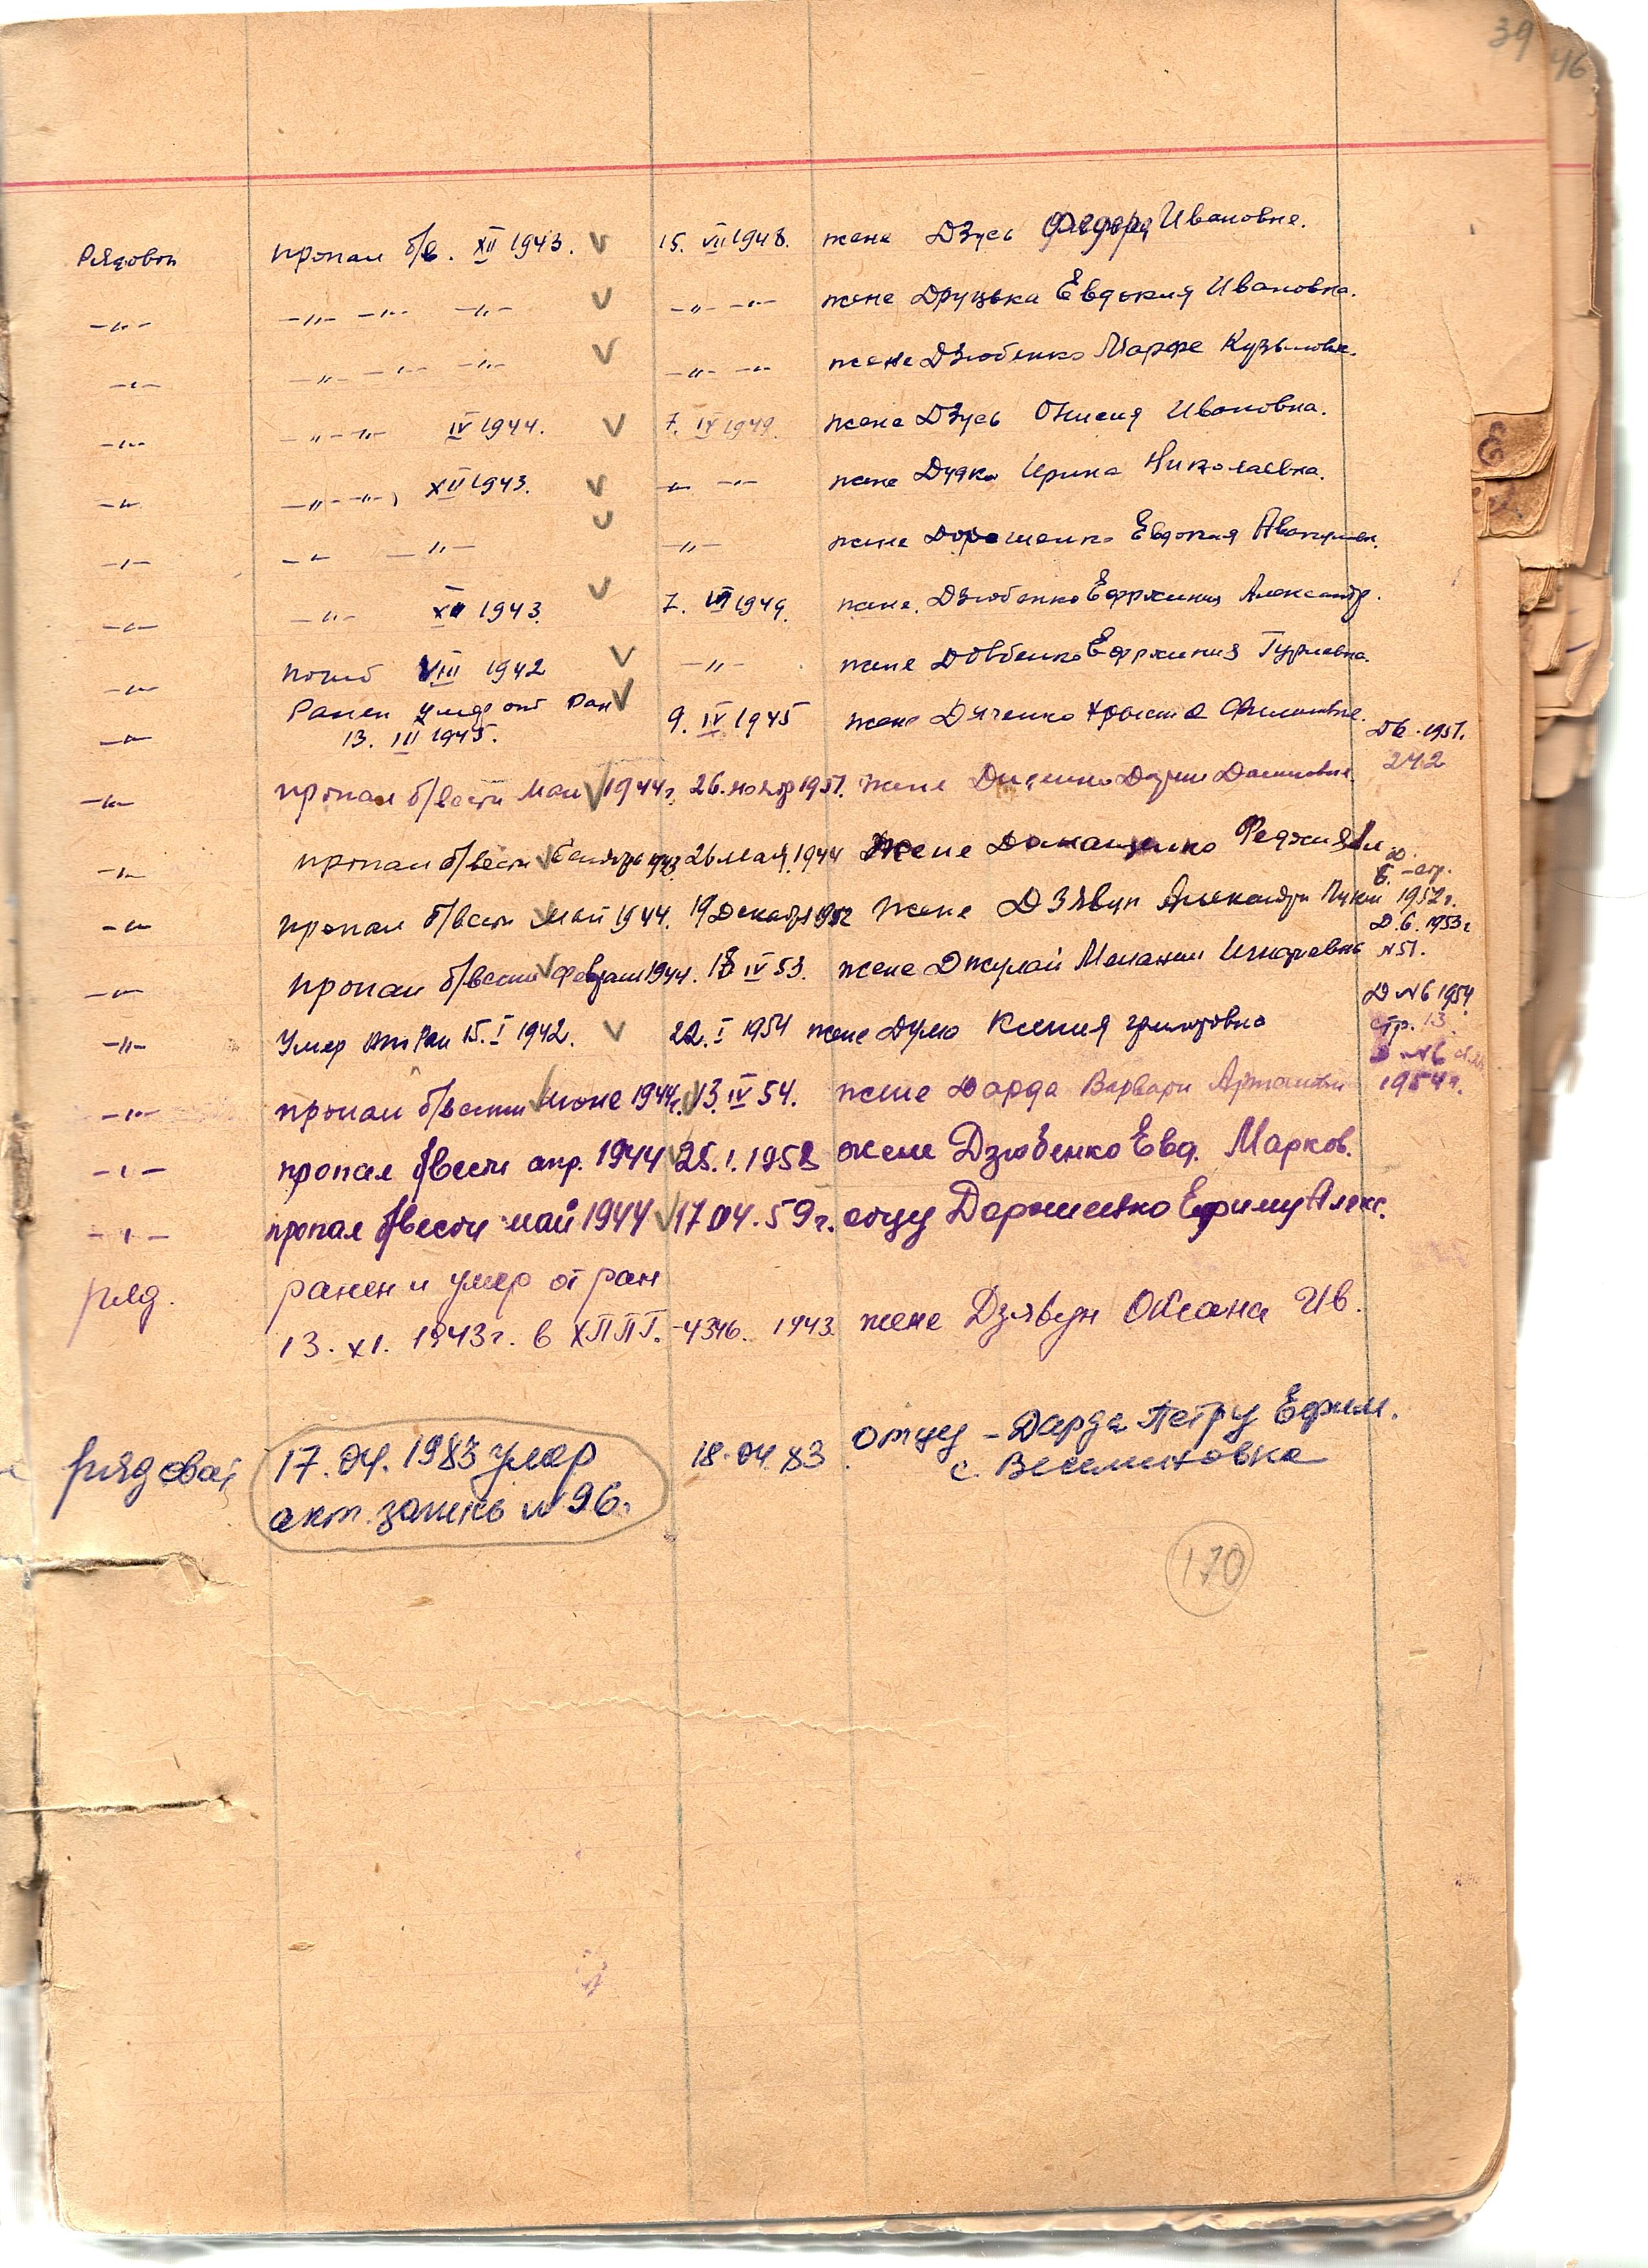 39
46
Рядовой пропал б/в. XII 1943. V 15. VII 1948. жене Дзусь Федора Ивановне.
—„— —„— —„— —„— V —„— —„— жене Друцька Евдокия Ивановна.
—„— —„— —„— —„— V —„— —„— жене Дзюбенко Марфе Кузьмовне.
—„— —„— —„— IV 1944. V 7. IV 1949. жене Дзусь Онисия Ивановна.
—„— —„— —„— XII 1943. V —„— —„— жене Дудко Ирина Николаевна.
—„— —„— —„— V —„— жене Дорошенко Евдокия
—„— —„— XII 1943. V 7. VII 1949. жене. Дзюбенко Ефрхиния Александр.
—„— погиб VIII 1942 V —„— жене Довбенко Ефрхиния Гурьевна.
—„— Ранен умер от ран V 9. IV 1945 жене Дяченко Христа
13. III 1945.
Д6. 1951.
242
—„— пропал б/вести май V 1944 г. 26. нояб 1951. жене Дищенко Дарии
—„— пропал б/вести V 1943 26 мая 1944 жене Доманщенко
Д.
6. -стр.
—„— пропал б/вести май 1944. 19 декабря 1952 жене Дзявун Александри 1952 г.
Д. 6. 1953 г
—„— пропал б/вести V феврал 1944. 18 IV 53. жене Джулай Мелании Игнатевне N 51.
Д N 6 1954
—„— Умер от ран 15. I 1942. V 22. I 1954 жене Дума Ксения григоровна стр. 13.
Д N 6
—„— пропал б/вести V июне 1944 г. V 13. IV 54. жене Дарда Варвари 1954 г.
—„— пропал б/вести апр. 1944 V 25. I. 1958 жене Дзюбенко Евд. Марков.
—„— пропал б/вести май 1944 V 17.04.59 г. отцу Дорошенко Ефиму Алекс.
ряд. ранен и умер от ран
13. XI. 1943 г. в ХППГ. -4346. 1943. жене Дзявун Оксана Ив.
рядовой 17.04.1983 умер 18.04.83. Отцу - Дарда Петру Ефим.
акт. запись N 96. с. Веселиновка
170